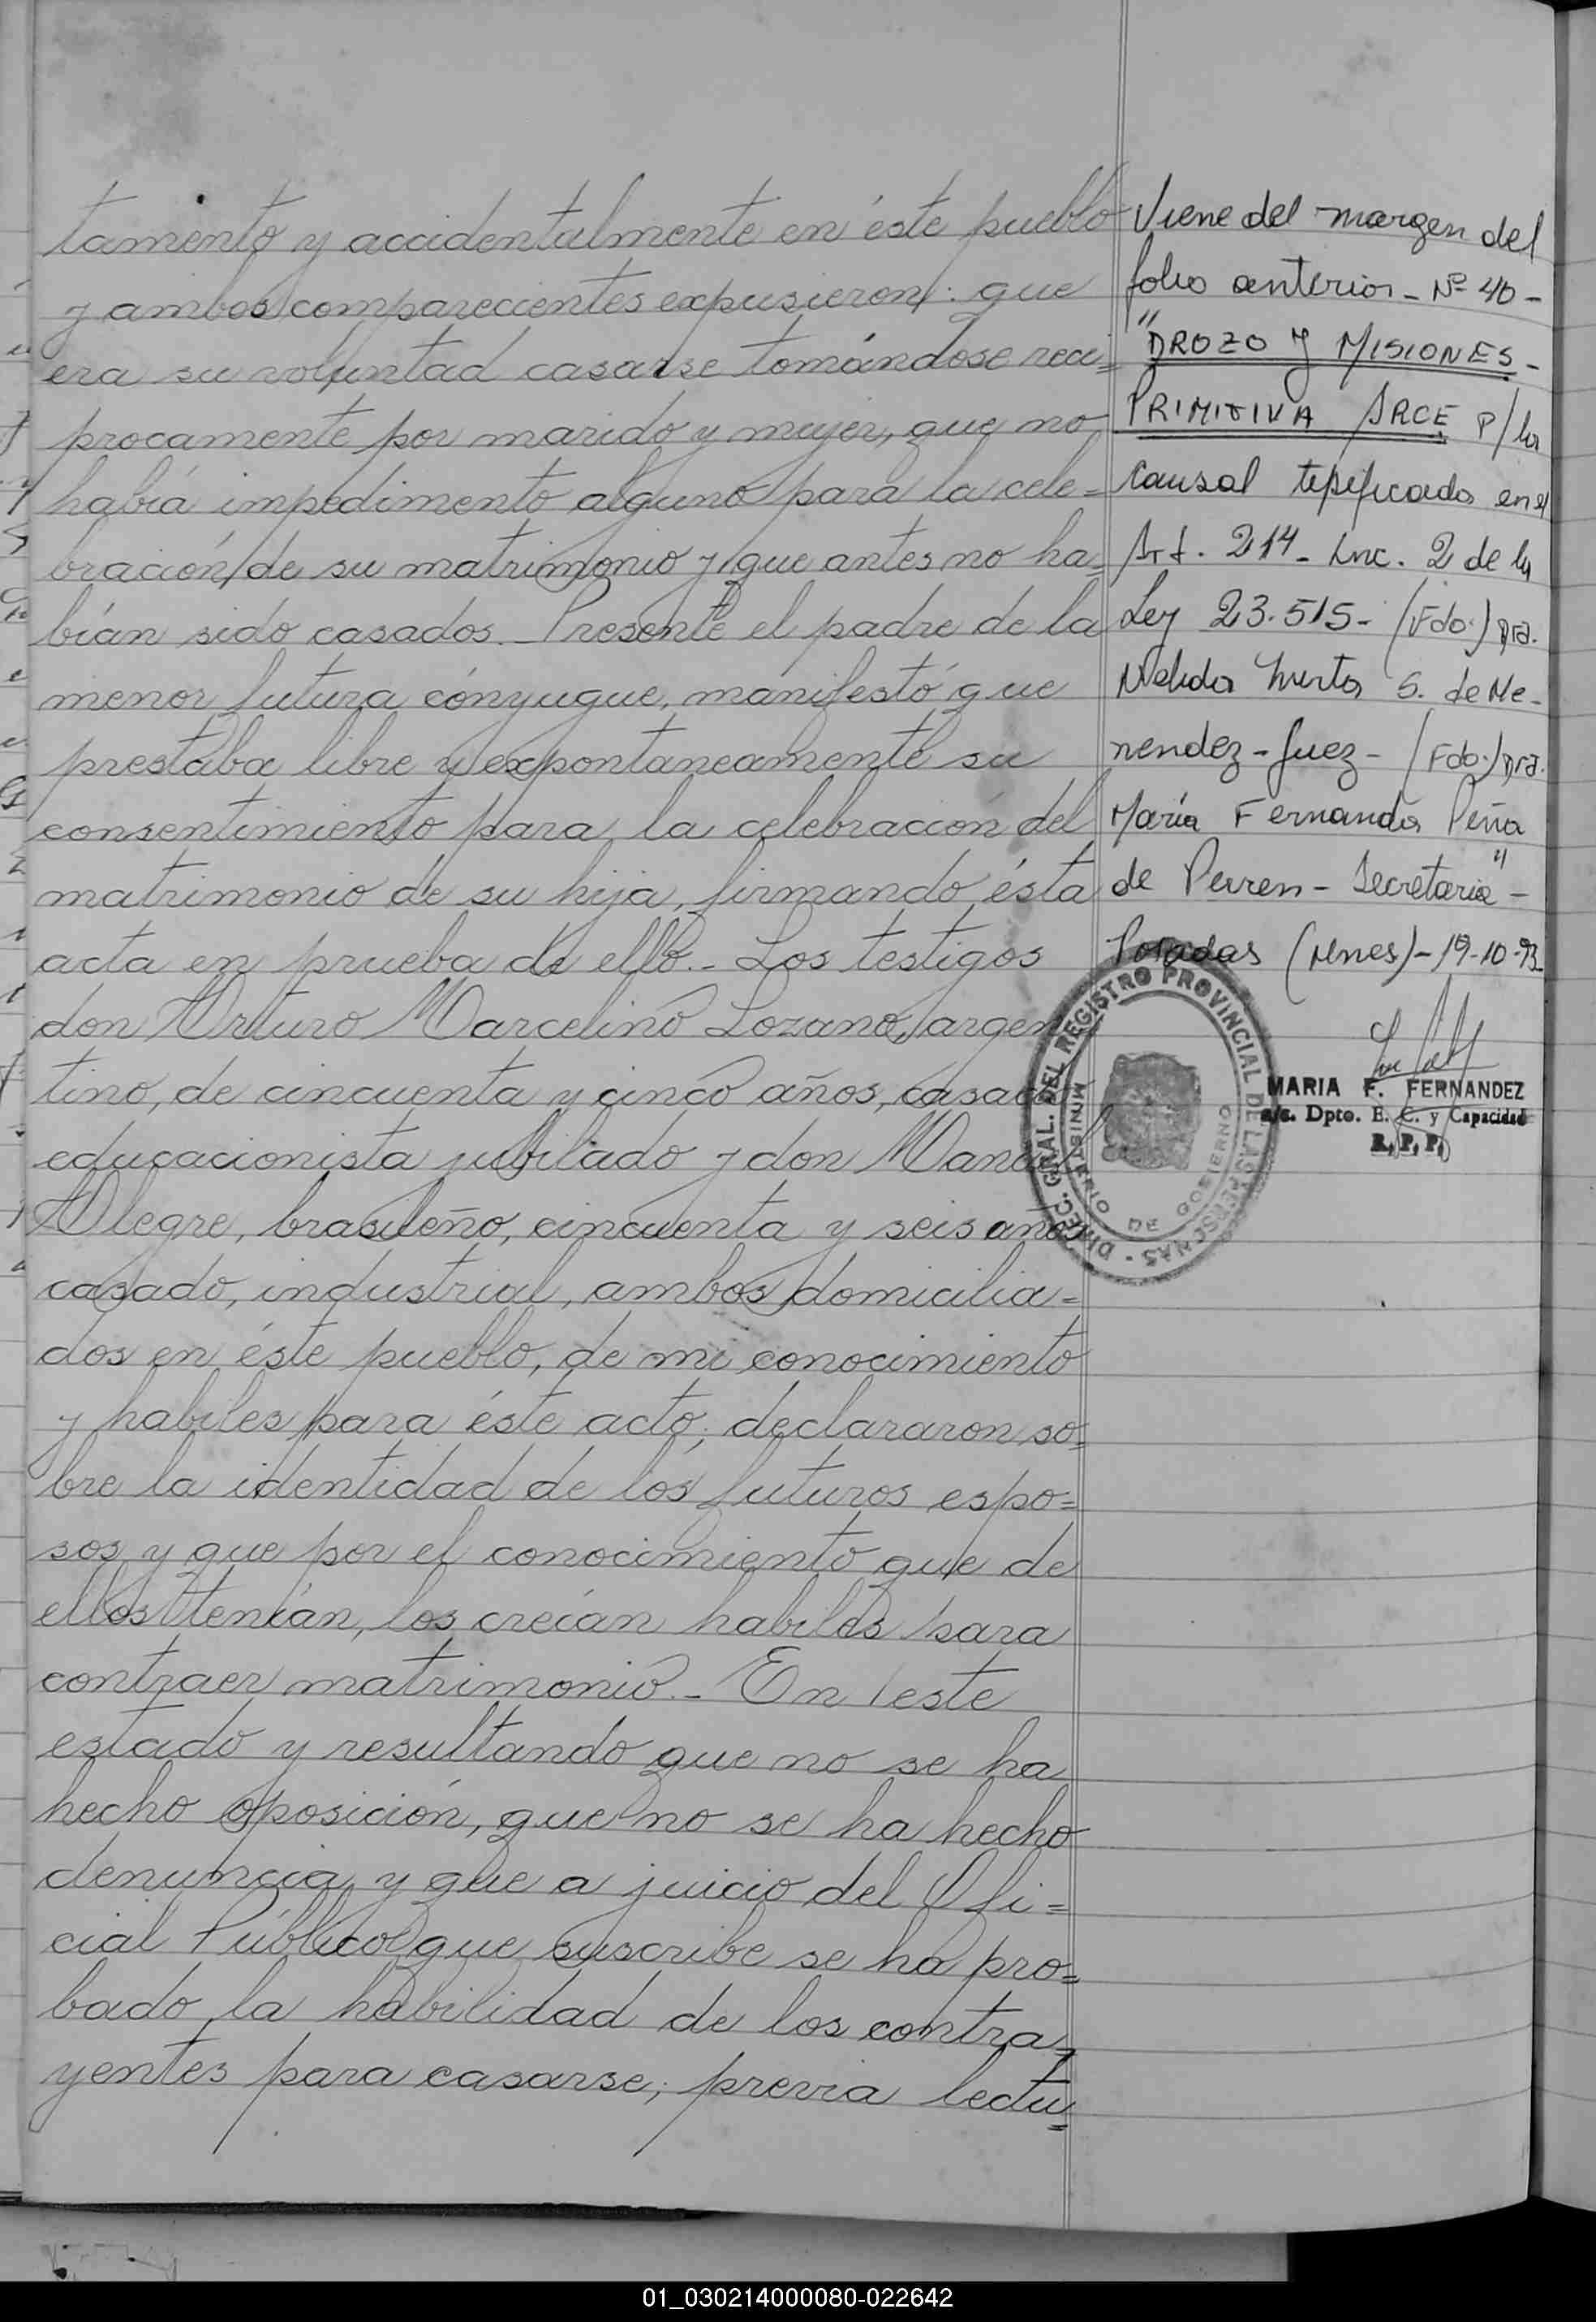 tamento y accidentalmente en éste pueblo
y ambos comparecientes expusieron: que
era su voluntad casarse tomándose reci=
procamente por marido y mujer, que no
habiá impedimento alguno para la cele=
bración de su matrimonio y que antes no ha=
bián sido casados.- Presente el padre de la
menor futura cónyugue, manifestó que
prestaba libre y expontaneamente su
consentimiento para la celebración del
matrimonio de su hija, firmando ésta
acta en prueba de ello.- Los testigos
don Arturo Marcelino Lozano, argen
tino, de cincuenta y cinco años, casado
educacionista jubilado y don Manoel
Alegre, brasileño, cincuenta y seis años
casado, industrial, ambos domicilia=
dos en éste pueblo, de mi conocimiento
y habiles para éste acto; declararon so=
bre la identidad de los futuros espo=
sos y que por el conocimiento que de
ellos tenián, los creían habiles para
contraer matrimonio.- En este
estado y resultando que no se ha
hecho oposición, que no se ha hecho
denuncia y que a juicio del Ofi=
cial Público que suscribe se ha pro=
bado la habilidad de los contra=
yentes para casarse; previa lectu=
Viene del margen del
folio anterior - Nº 40 -
"DROZO Y MISIONES -
PRIMITIVA ARCE P/la
causal tipificada en el
Art. 214 - Inc. 2 de la
Ley 23.515 - (Fdo.) Dra.
S. de Me-
nendez - Juez - (Fdo.) Dra.
María Fernanda Peña
de Perren - Secretaria" -
Posadas (Mnes) - 19-10-93
DIREC. GRAL. DEL REGISTRO PROVINCIAL DE LAS PERSONAS
MINISTERIO DE GOBIERNO
MARIA F. FERNANDEZ
a/c. Dpto. E. C. y Capacidad
R. P. P.
01_030214000080-022642